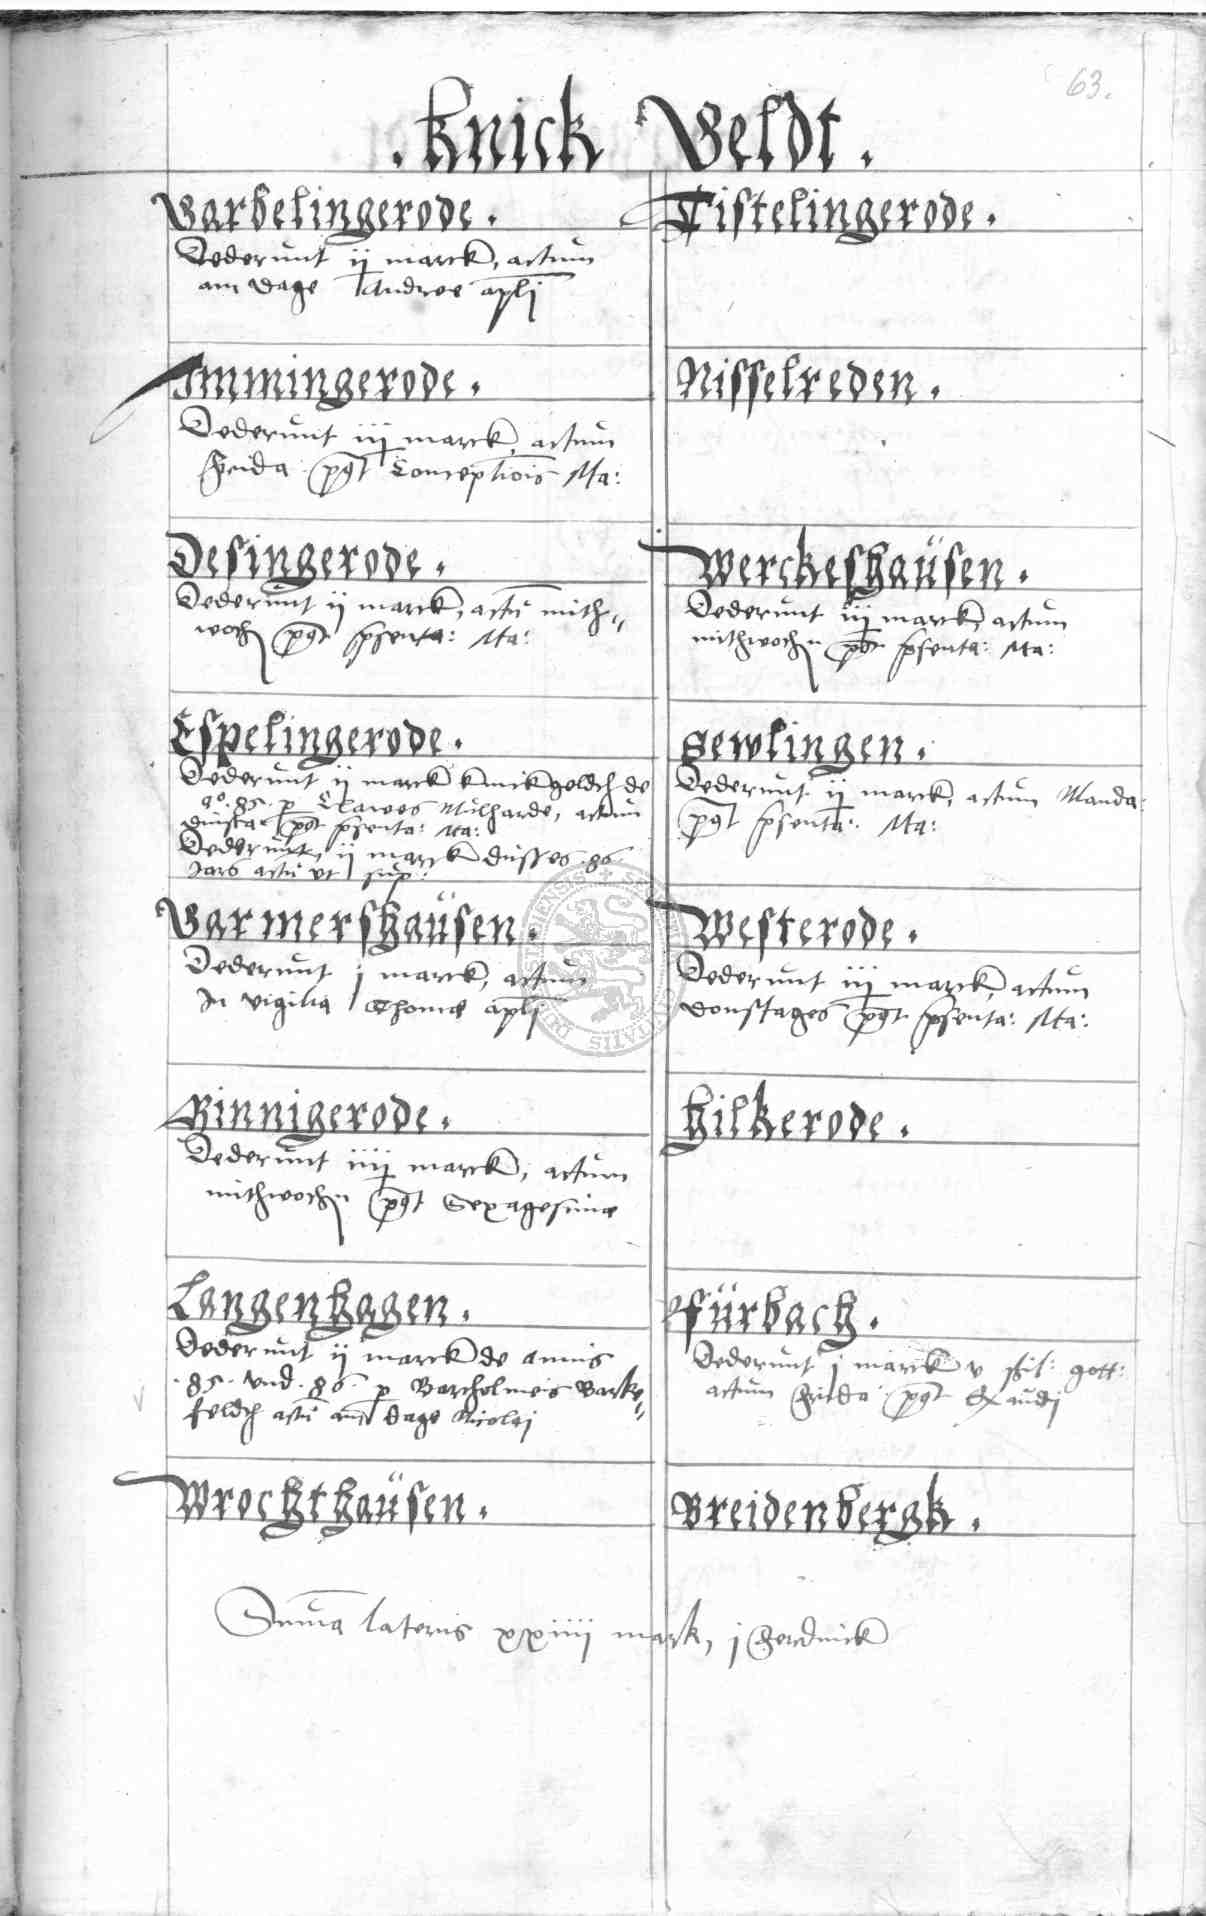 63.
. Knick Geldt .
Garbelingerode .
Dederunt ij marck, actum
am dage Andree apli
Immingerode .
Dederunt iij marck, actum
frida: pꝰt Conceptiois Ma:
Desingerode .
Dederunt ij marck, actū mith„
woch pꝰt p̄senta: Ma:
Espelingerode .
Dederunt ij marck knickgeldth de
aō. 85. p Clawes Mülharde, actum
dinsta: pꝰt p̄senta: Ma:
Dederunt, ij marck düsses .86.
Jars actū vt sup:
Garmershaüsen .
Dederunt j marck, actum
In vigilia Thome apli
Binnigerode .
Dederunt iiij marck, actum
mithwochn pꝰt Sexagesime
Langenhagen .
Dederunt ij marck de annis
. 85. vnd . 86. p Bartholmeis Barke„
feldth actū am dage Nicolaj
Wrochthaüsen .
Tistelingerode .
Nisselreden .
Werckeshaüsen .
Dederunt iij marck, actum
mithwochn pꝰt p̄senta: Ma:
Sewlingen .
Dederunt ij marck, actum Manda:
pꝰt p̄senta: Ma:
Westerode .
Dederunt iij marck, actum
donstages pꝰt p̄senta: Ma:
Hilkerode .
Fürbach .
Dederunt j marck v ßil: gott:
actum frida: pꝰt Exaudj
Breidenbergk .
Suma lateris xxiiij mark, j ferdinck